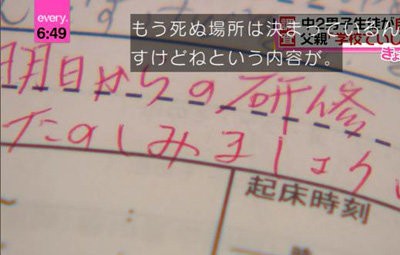 every.
6:49
もう死ぬ場所は決まっているんですけどねという内容が。
中2男子生徒が
父親 "学校でいじ
明日からの研修
たのしみましょう
起床時刻